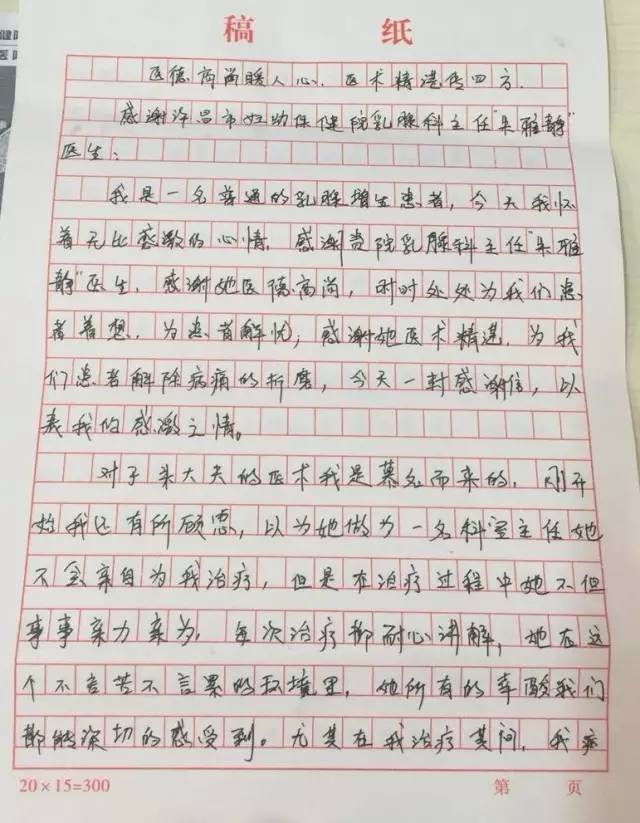 稿 纸
医德高尚暖人心，医术精湛传四方。
感谢许昌市妇幼保健院乳腺科主任"朱雅静"
医生：
我是一名普通的乳腺增生患者，今天我怀
着无比感激的心情，感谢贵院乳腺科主任"朱雅
静"医生，感谢她医德高尚，时时处处为我们患
者着想，为患者解忧；感谢她医术精湛，为我
们患者解除病痛的折磨，今天一封感谢信，以
表我的感激之情。
对于朱大夫的医术我是慕名而来的，刚开
始我还有所顾虑，以为她做为一名科室主任她
不会亲自为我治疗，但是在治疗过程中她不但
事事亲力亲为，每次治疗都耐心讲解，她在这
个不言苦不言累的环境里，她所有的辛酸我们
都能深切的感受到。尤其在我治疗其间，我病
20×15=300 第 页